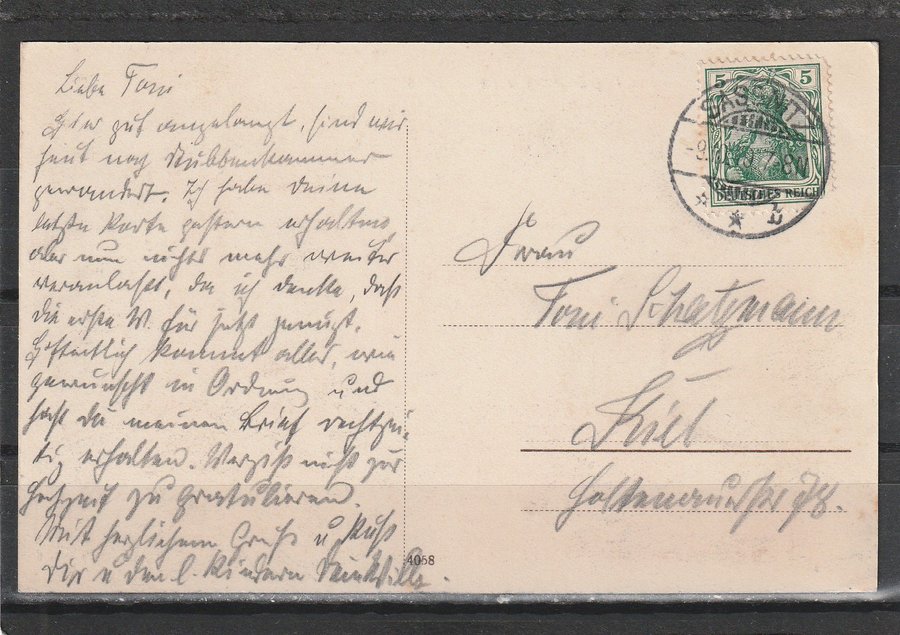 Liebe Toni
Hier gut angelangt, sind wir
heut nach Stubbenkammer
gewandert. Ich habe Deine
letzte Karte gestern erhalten,
aber nun nichts mehr weiter
veranlasst, da ich denke, daß
die erste W. für jetzt genügt.
Hoffentlich kommt alles, wie
gewünscht in Ordnung und
hast du meinen Brief rechtzei-
tig erhalten. Vergiß nicht zur
Hochzeit zu gratulieren.
Mit herzlichem Gruß u. Kuß
Dir u den l. Kindern Dein Willy.
4058
5 5
DEUTSCHES REICH
SASSNITZ
7-8N
Frau
Toni Schatzmann
Kiel
Holtenauerstr 78.